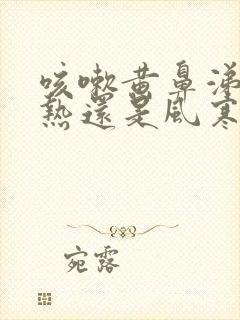 咳嗽黃鼻涕
熱還是風寒
宛露